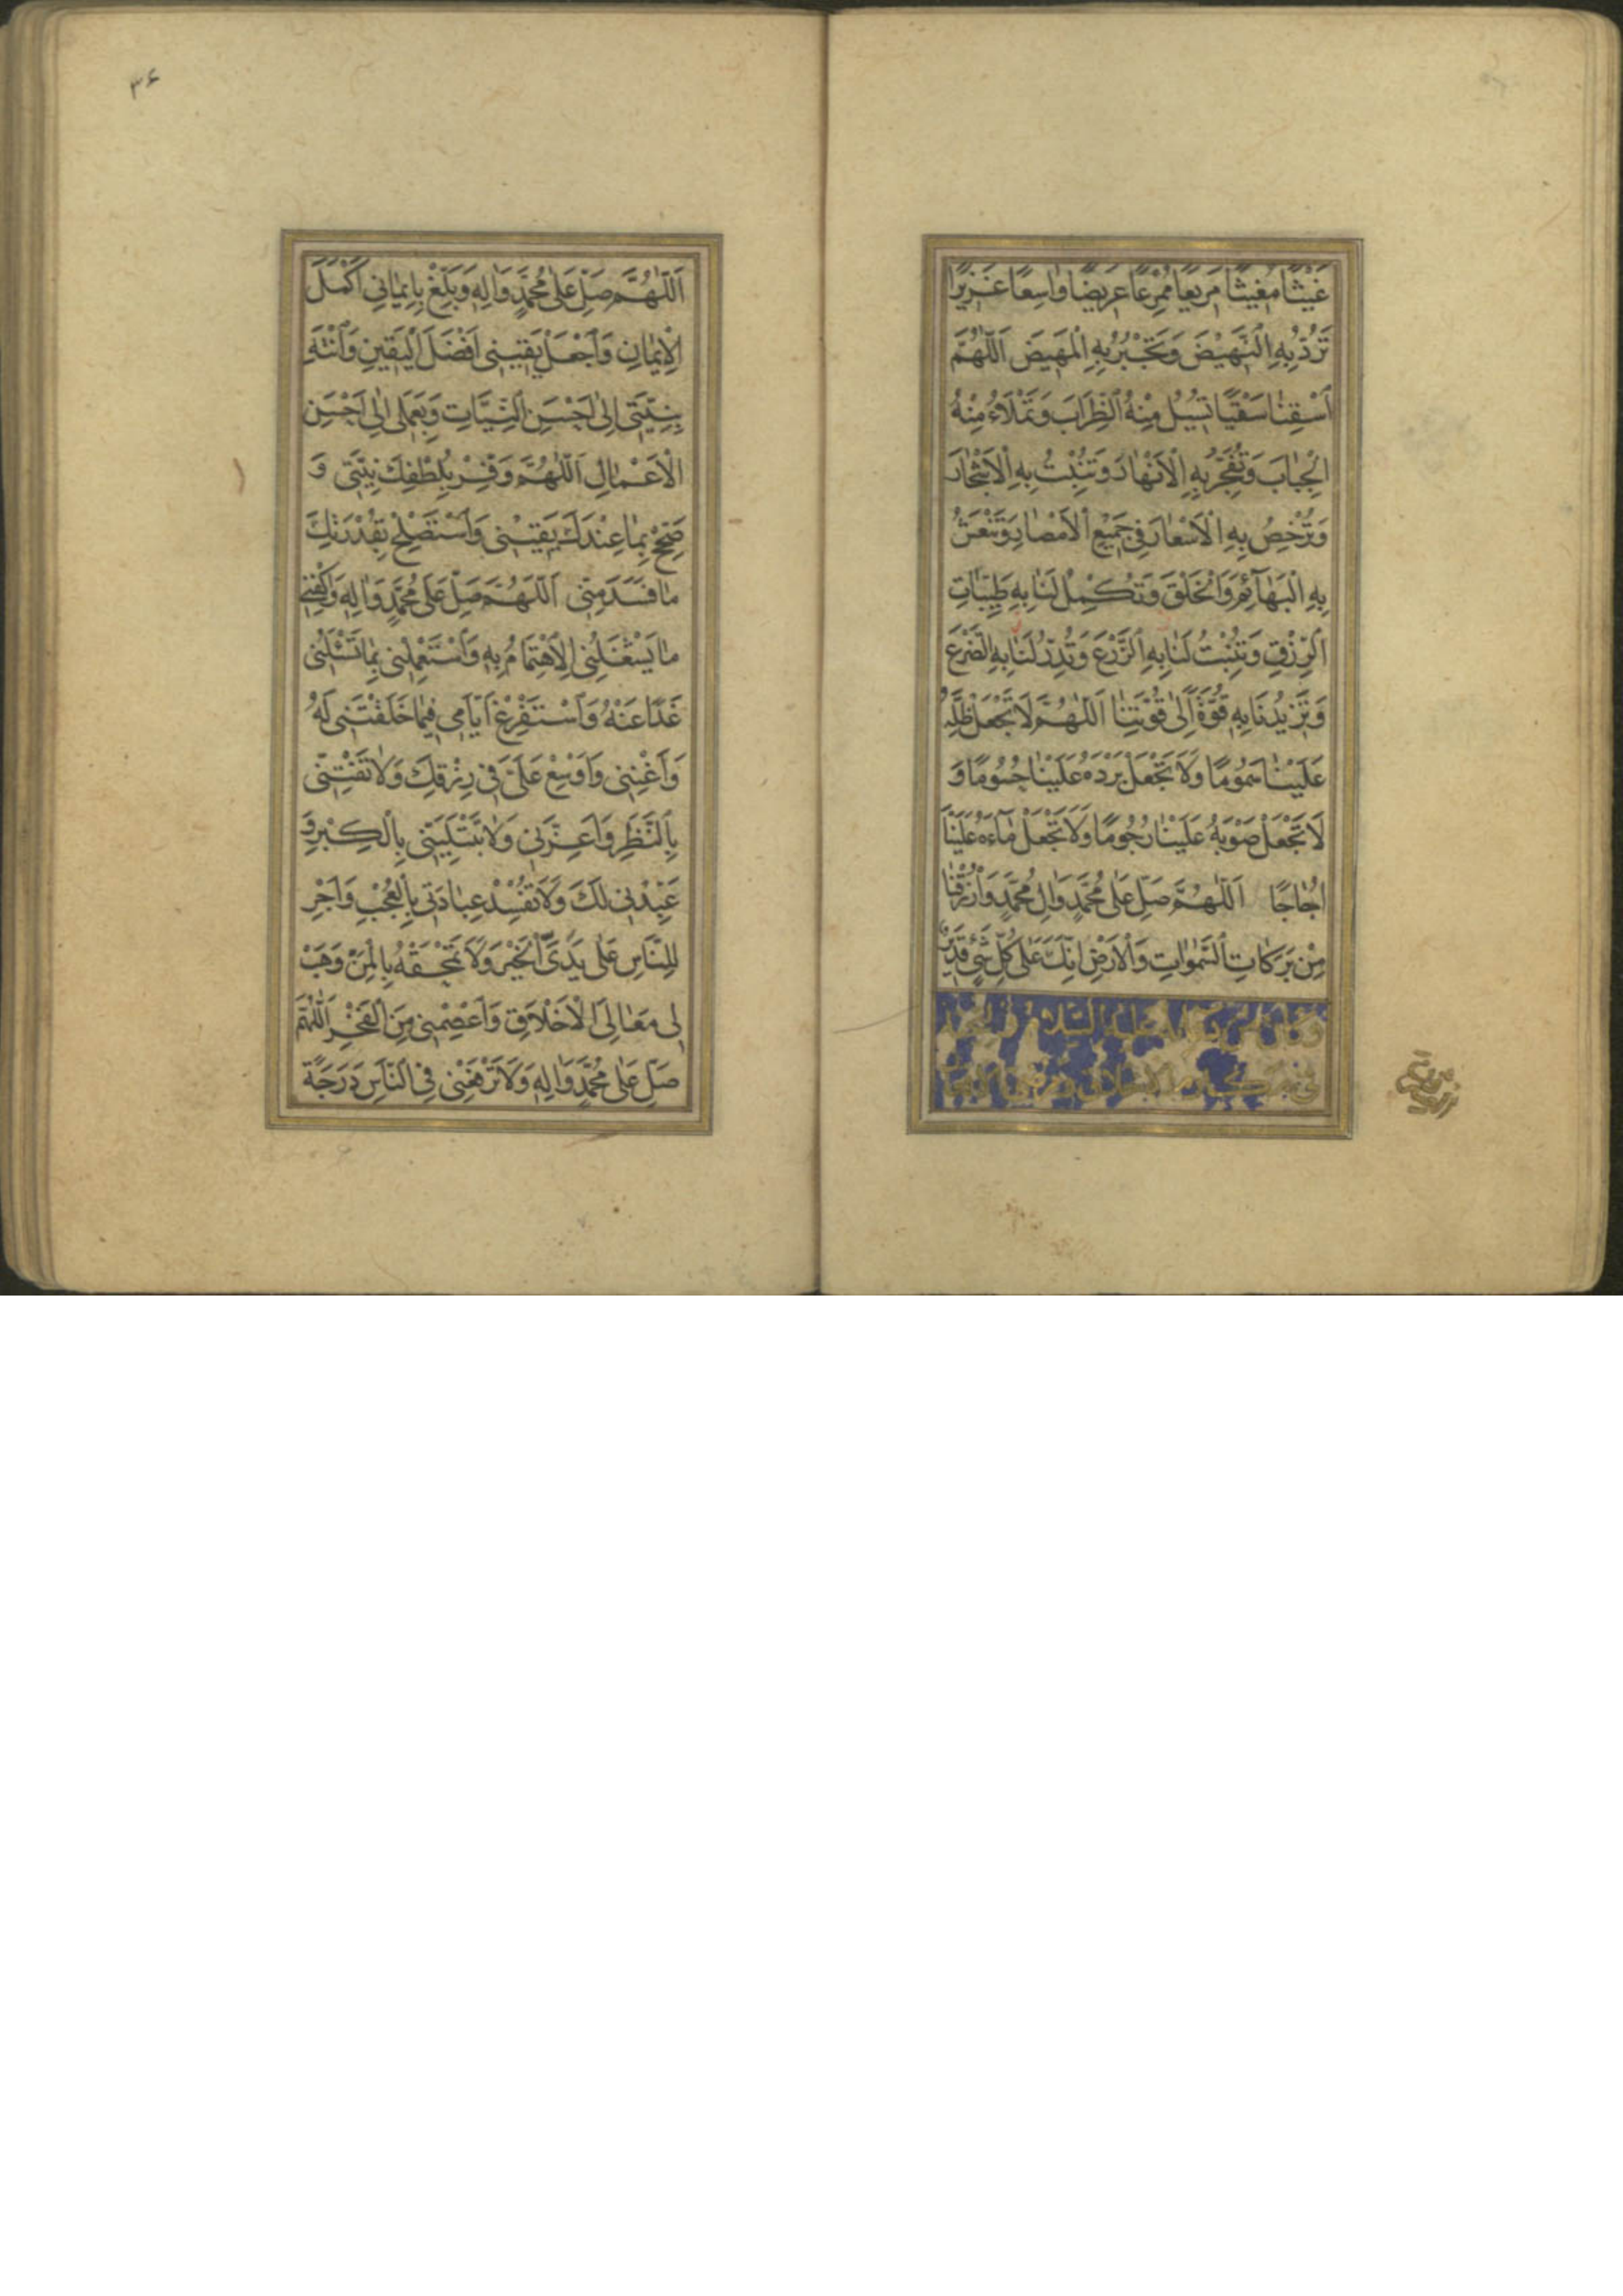 غَيْثًا مُغِيثًا مَرِيعًا مُمْرِعًا عَرِيضًا وَاسِعًا غَزِيرًا
تَرُدُّ بِهِ النَّهِيضَ وَتَجْبُرُ بِهِ الْمَهِيضَ اَللّٰهُمَّ
اسْقِنَا سَقْيًا تُسِيلُ مِنْهُ الظِّرَابَ وَتَمْلَاءُ مِنْهُ
الْجِبَابَ وَتُفَجِّرُ بِهِ الْاَنْهَارَ وَتُنْبِتُ بِهِ الْاَشْجَارَ
وَتُرْخِصُ بِهِ الْاَسْعَارَ فِي جَمِيعِ الْاَمْصَارِ وَتَنْعَشُ
بِهِ الْبَهَآئِمَ وَالْخَلْقَ وَتُكْمِلُ لَنَا بِهِ طَيِّبَاتِ
الرِّزْقِ وَتُنْبِتُ لَنَا بِهِ الزَّرْعَ وَتُدِرُّ لَنَا بِهِ الضَّرْعَ
وَتَزِيدُنَا بِهِ قُوَّةً اِلٰى قُوَّتِنَا اَللّٰهُمَّ لَا تَجْعَلْ ظِلَّهُ
عَلَيْنَا سَمُومًا وَلَا تَجْعَلْ بَرْدَهُ عَلَيْنَا حُسُومًا وَ
لَا تَجْعَلْ صَوْبَهُ عَلَيْنَا رُجُومًا وَلَا تَجْعَلْ مَآءَهُ عَلَيْنَا
اُجَاجًا اَللّٰهُمَّ صَلِّ عَلٰى مُحَمَّدٍ وَاٰلِ مُحَمَّدٍ وَارْزُقْنَا
مِنْ بَرَكَاتِ السَّمٰوَاتِ وَالْاَرْضِ اِنَّكَ عَلٰى كُلِّ شَيْءٍ قَدِيرٌ
عليه السلام
في مكارم الاخلاق
٣۶
اَللّٰهُمَّ صَلِّ عَلٰى مُحَمَّدٍ وَاٰلِهِ وَبَلِّغْ بِاِيمَانِي اَكْمَلَ
الْاِيمَانِ وَاجْعَلْ يَقِينِي اَفْضَلَ الْيَقِينِ وَانْتَهِ
بِنِيَّتِي اِلٰى اَحْسَنِ النِّيَّاتِ وَبِعَمَلِي اِلٰى اَحْسَنِ
الْاَعْمَالِ اَللّٰهُمَّ وَفِّرْ بِلُطْفِكَ نِيَّتِي وَ
صَحِّحْ بِمَا عِنْدَكَ يَقِينِي وَاسْتَصْلِحْ بِقُدْرَتِكَ
مَا فَسَدَ مِنِّي اَللّٰهُمَّ صَلِّ عَلٰى مُحَمَّدٍ وَاٰلِهِ وَاكْفِنِي
مَا يَشْغَلُنِي الْاِهْتِمَامُ بِهِ وَاسْتَعْمِلْنِي بِمَا تَسْئَلُنِي
غَدًا عَنْهُ وَاسْتَفْرِغْ اَيَّامِي فِيمَا خَلَقْتَنِي لَهُ
وَاَغْنِنِي وَاَوْسِعْ عَلَيَّ فِي رِزْقِكَ وَلَا تَفْتِنِّي
بِالنَّظَرِ وَاَعِزَّنِي وَلَا تَبْتَلِيَنِّي بِالْكِبْرِ وَ
عَبِّدْنِي لَكَ وَلَا تُفْسِدْ عِبَادَتِي بِالْعُجْبِ وَاَجْرِ
لِلنَّاسِ عَلٰى يَدَيَّ الْخَيْرَ وَلَا تَمْحَقْهُ بِالْمَنِّ وَهَبْ
لِي مَعَالِيَ الْاَخْلَاقِ وَاعْصِمْنِي مِنَ الْفَخْرِ اَللّٰهُمَّ
صَلِّ عَلٰى مُحَمَّدٍ وَاٰلِهِ وَلَا تَرْفَعْنِي فِي النَّاسِ دَرَجَةً